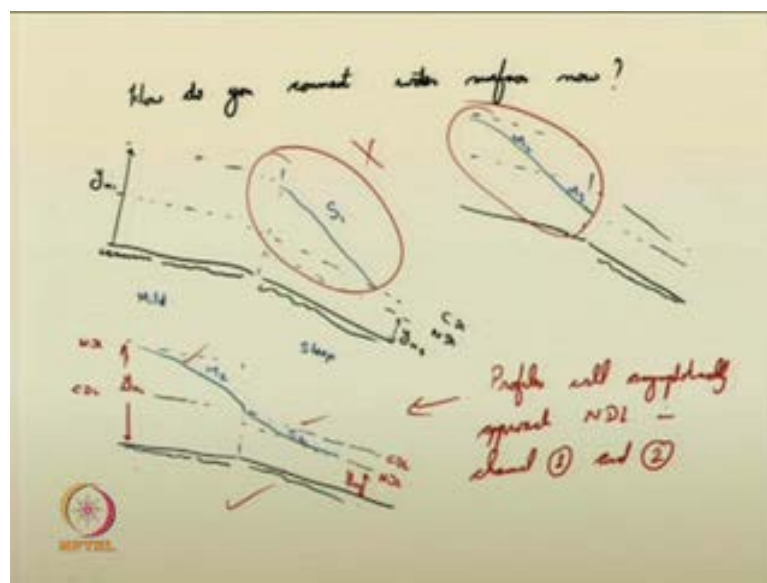 How do you connect water surfaces now?
X
Mild
Steep
CDL
NDL
NDL
CDL
M2
CDL
NDL
Profiles will asymptotically
approach NDL –
channel ① and ②
NPTEL